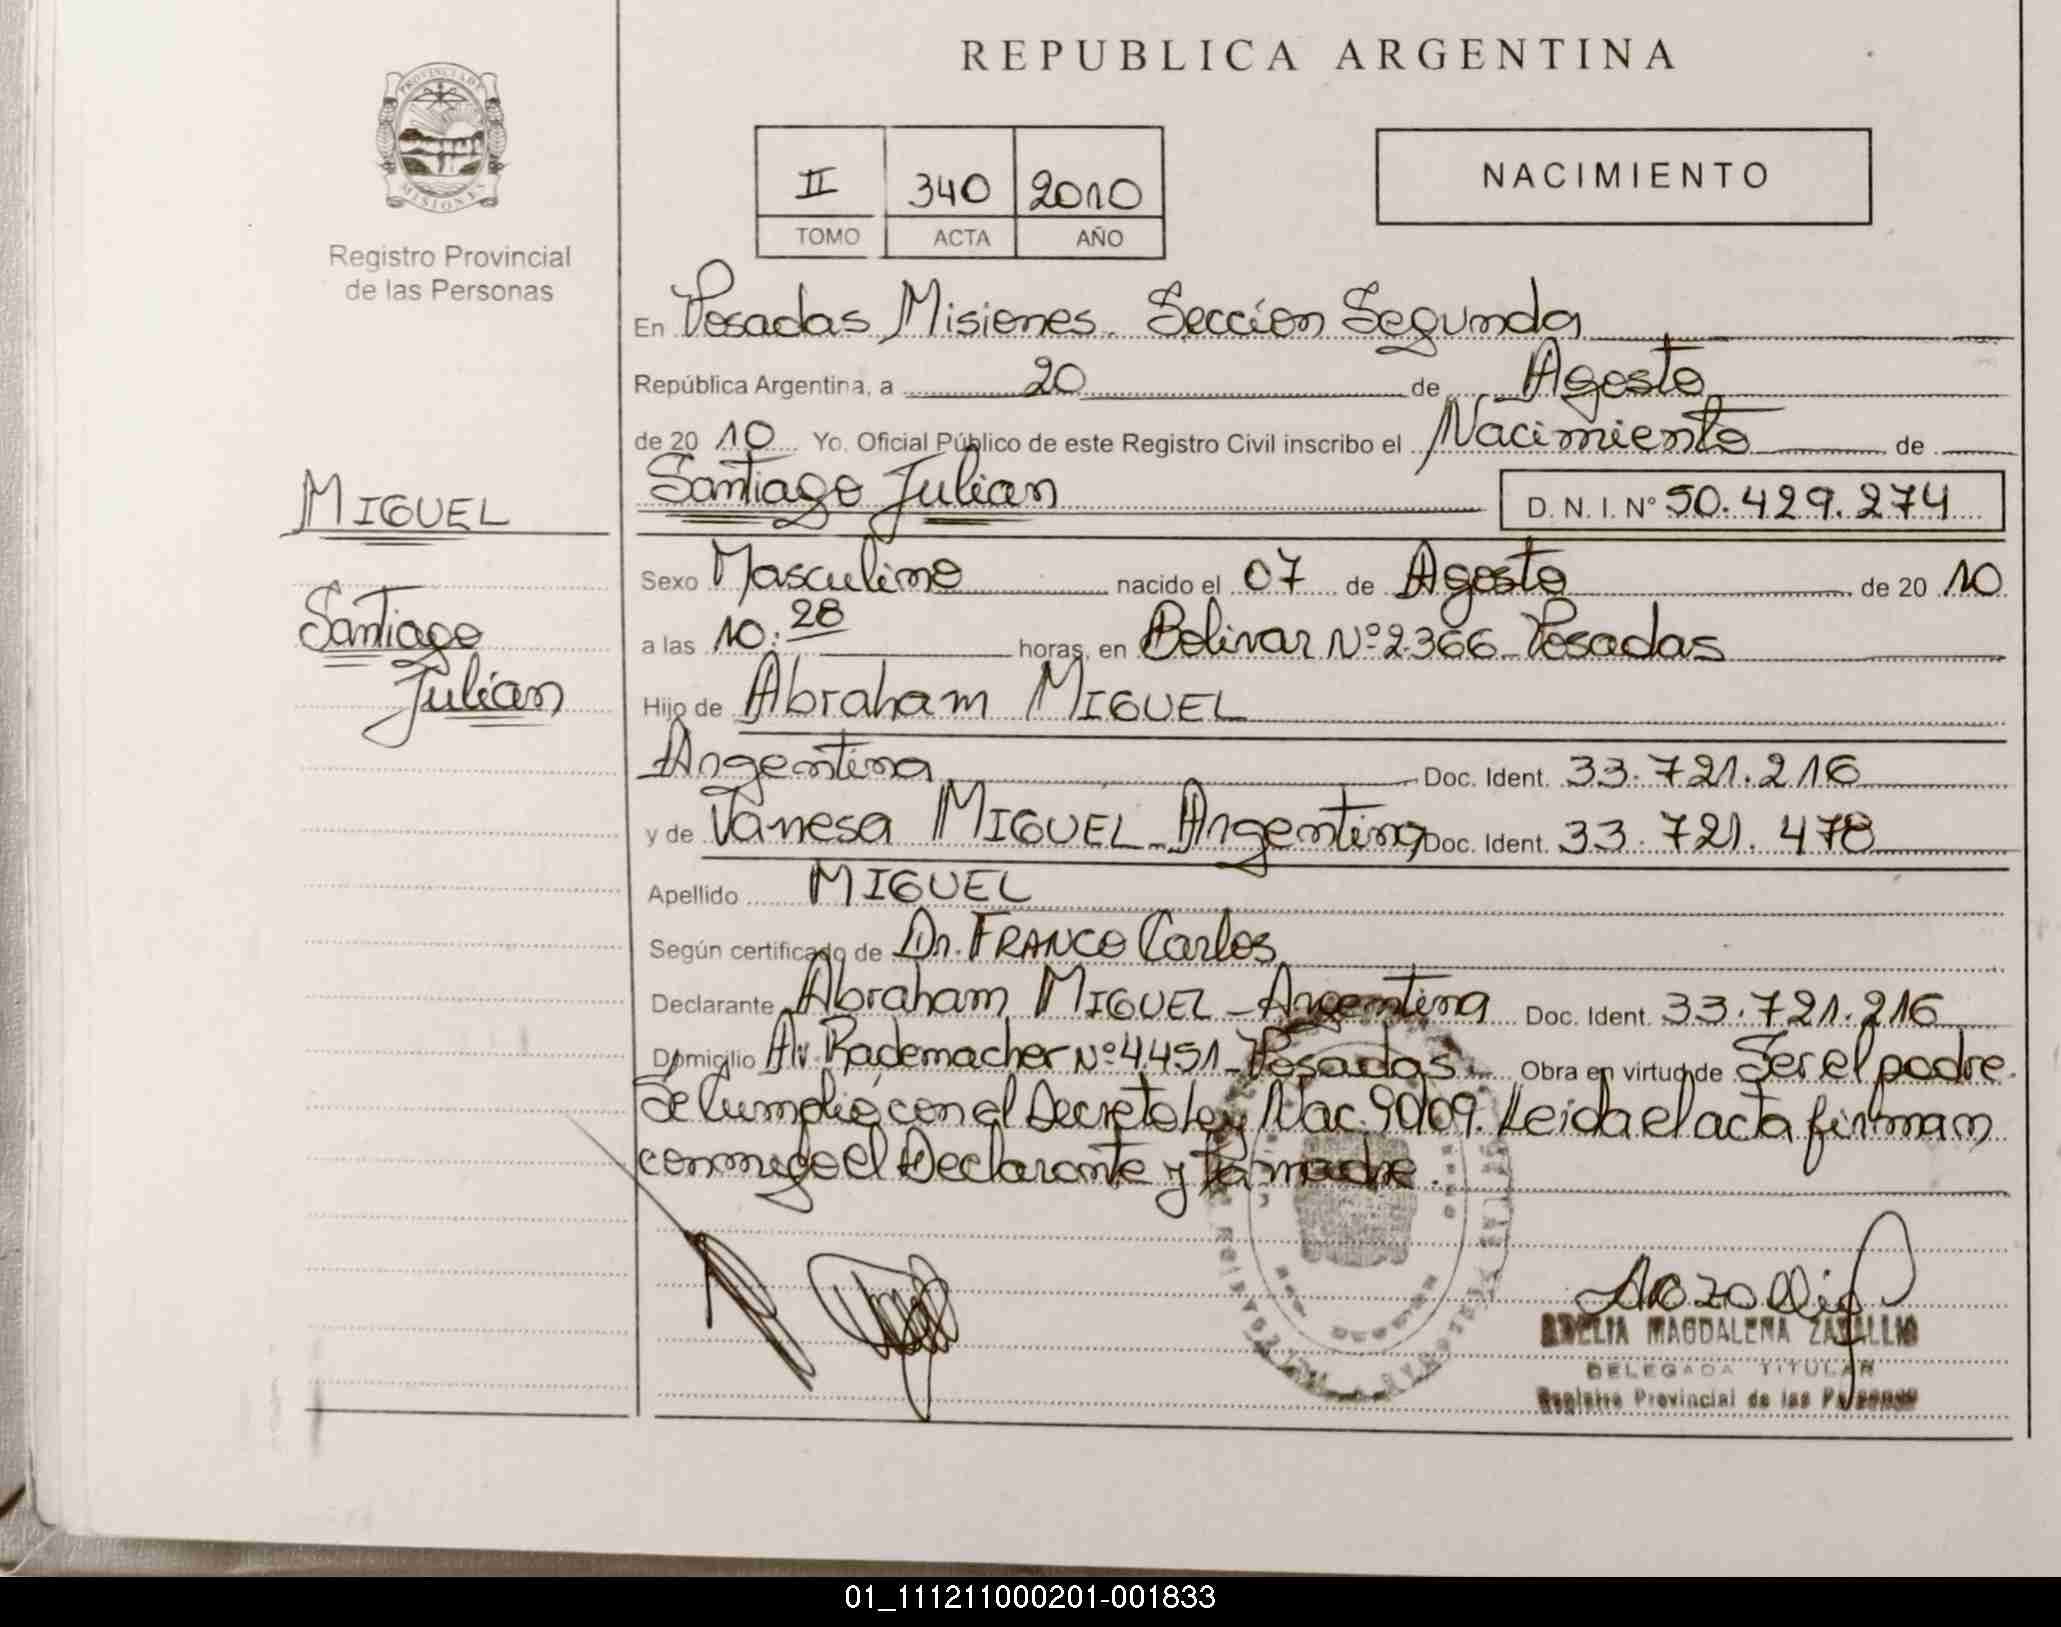 REPUBLICA ARGENTINA
PROVINCIA DE
MISIONES
Registro Provincial
de las Personas
II 340 2010
TOMO ACTA AÑO
NACIMIENTO
En Posadas Misiones. Sección Segunda
República Argentina, a 20 de Agosto
de 20 10 Yo. Oficial Público de este Registro Civil inscribo el Nacimiento de
MIGUEL
Santiago Julian D. N. I. Nº 50.429.274
Santiago
Julian
Sexo Masculino nacido el 07 de Agosto de 20 10
a las 10:28 horas, en Bolivar Nº 2.366 - Posadas
Hijo de Abraham MIGUEL
Argentina Doc. Ident. 33.721.216
y de Vanesa MIGUEL - Argentina Doc. Ident. 33.721.478
Apellido MIGUEL
Según certificado de Dr. FRANCO Carlos
Declarante Abraham MIGUEL - Argentina Doc. Ident. 33.721.216
Domicilio Av. Rademacher Nº 4.451 - Posadas Obra en virtud de Ser el padre.
Se Cumplió con el Decreto Ley Nac. 9009. Leida el acta firman
conmigo el Declarante y la madre.
MAGDALENA
DELEGADA TITULAR
Registro Provincial de las Personas
01_111211000201-001833